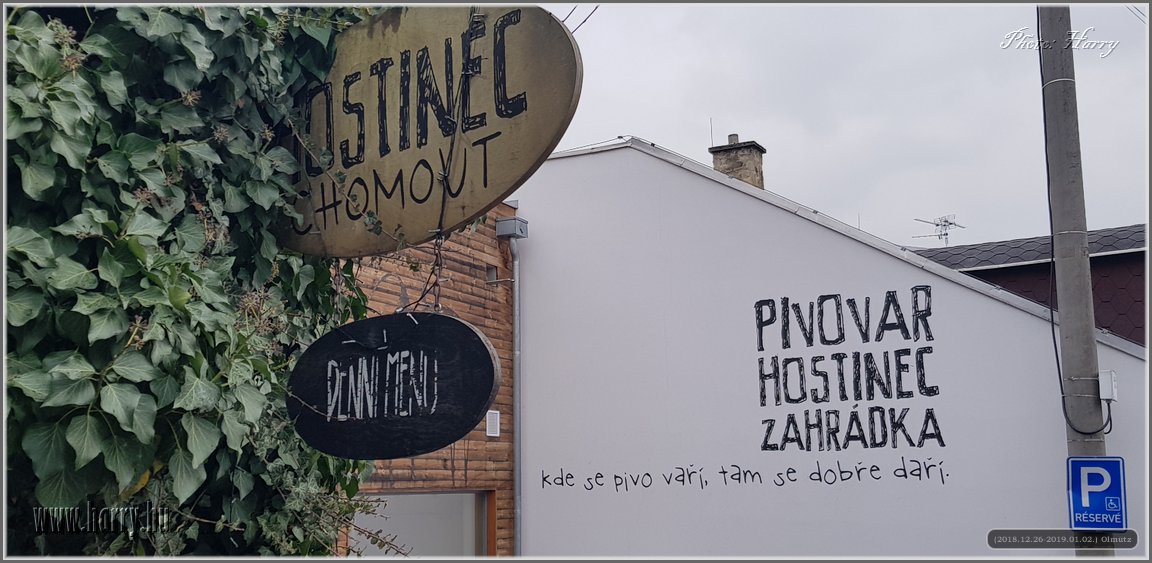 Photo: Harry
HOSTINEC
CHOMOUT
DENNÍ MENU
PIVOVAR
HOSTINEC
ZAHRÁDKA
kde se pivo vaří, tam se dobře daří.
P
RÉSERVÉ
www.harry.hu
(2018.12.26-2019.01.02.) Olmütz